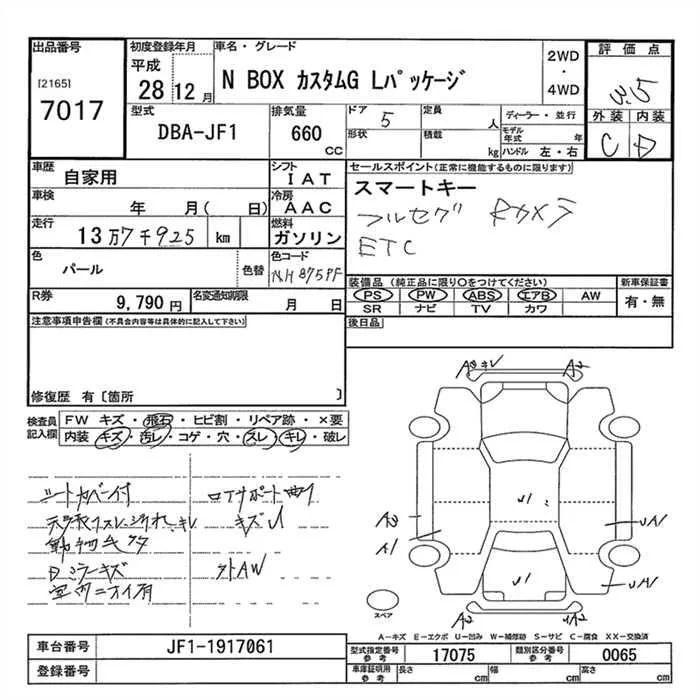 出品番号
[2165]
7017
初度登録年月
平成
28 12月
車名・グレード
N BOX カスタムG Lパッケージ
2WD
・
4WD
評価点
3.5
外装 内装
C D
型式
DBA-JF1
排気量
660
CC
ドア 5
形状
定員 人
積載 kg
ディーラー・並行
モデル年式 年
ハンドル 左・右
車歴
自家用
シフト
IAT
車検
年 月( 日)
冷房
AAC
走行
13万7千925 km
燃料
ガソリン
色
パール
色替
色コード
NH875PF
R券
9,790円
名変通知期限
月 日
セールスポイント(正常に機能するものに限ります)
スマートキー
フルセグ Rカメラ
ETC
装備品 (純正品に限り○をつけてください)
PS PW ABS エアB AW
SR ナビ TV カワ
新車保証書
有・無
後日品
注意事項申告欄(不具合内容等は具体的に記入して下さい)
修復歴 有〔箇所 〕
検査員
記入欄
FW キズ・飛石・ヒビ割・リペア跡・×要
内装 キズ・汚レ・コゲ・穴・スレ・キレ・破レ
シートカバー付
ロアサポート曲リ
キズU
Dミラーキズ
外AW
室内ニオイ有
A3キレ
A2
U1
A3
A1
UA1
U1
UA1
A2
UA2
スペア
A−キズ E−エクボ U−凹み W−補修跡 S−サビ C−腐食 XX−交換済
車台番号
JF1-1917061
登録番号
型式指定番号
参考
17075
類別区分番号
参考
0065
車庫証明用
参考
長さ cm
幅 cm
高さ cm